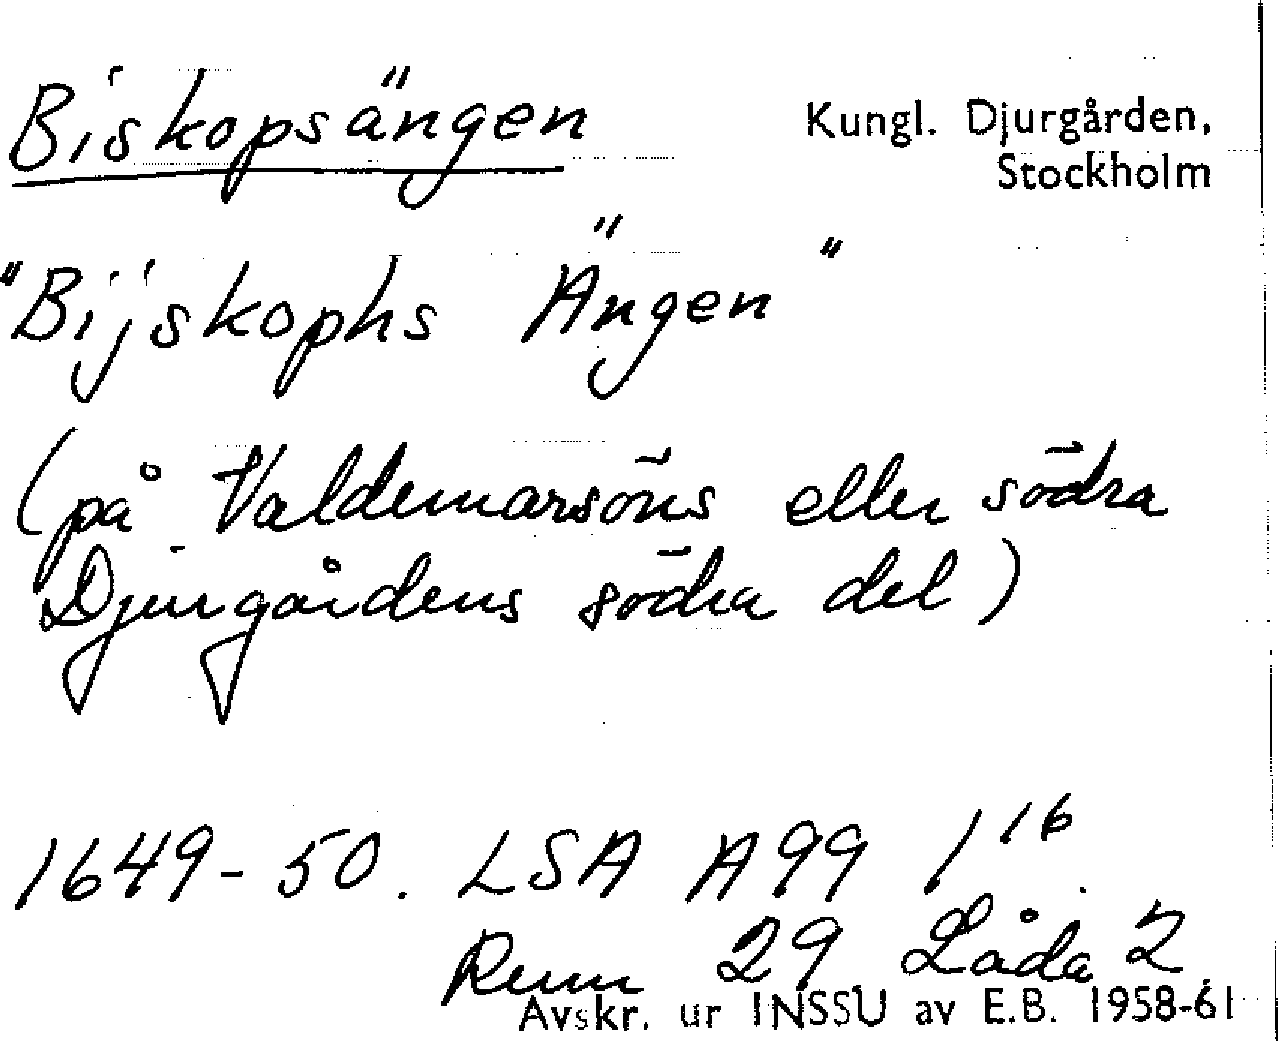 Biskopsängen
Kungl. Djurgården,
Stockholm
"Bijskophs Ängen"
(på Valdemarsöns eller södra
Djurgårdens södra del)
1649-50. LSA A99 1¹⁶
Rum 29 Låda 2.
Avskr. ur INSSU av E.B. 1958-61